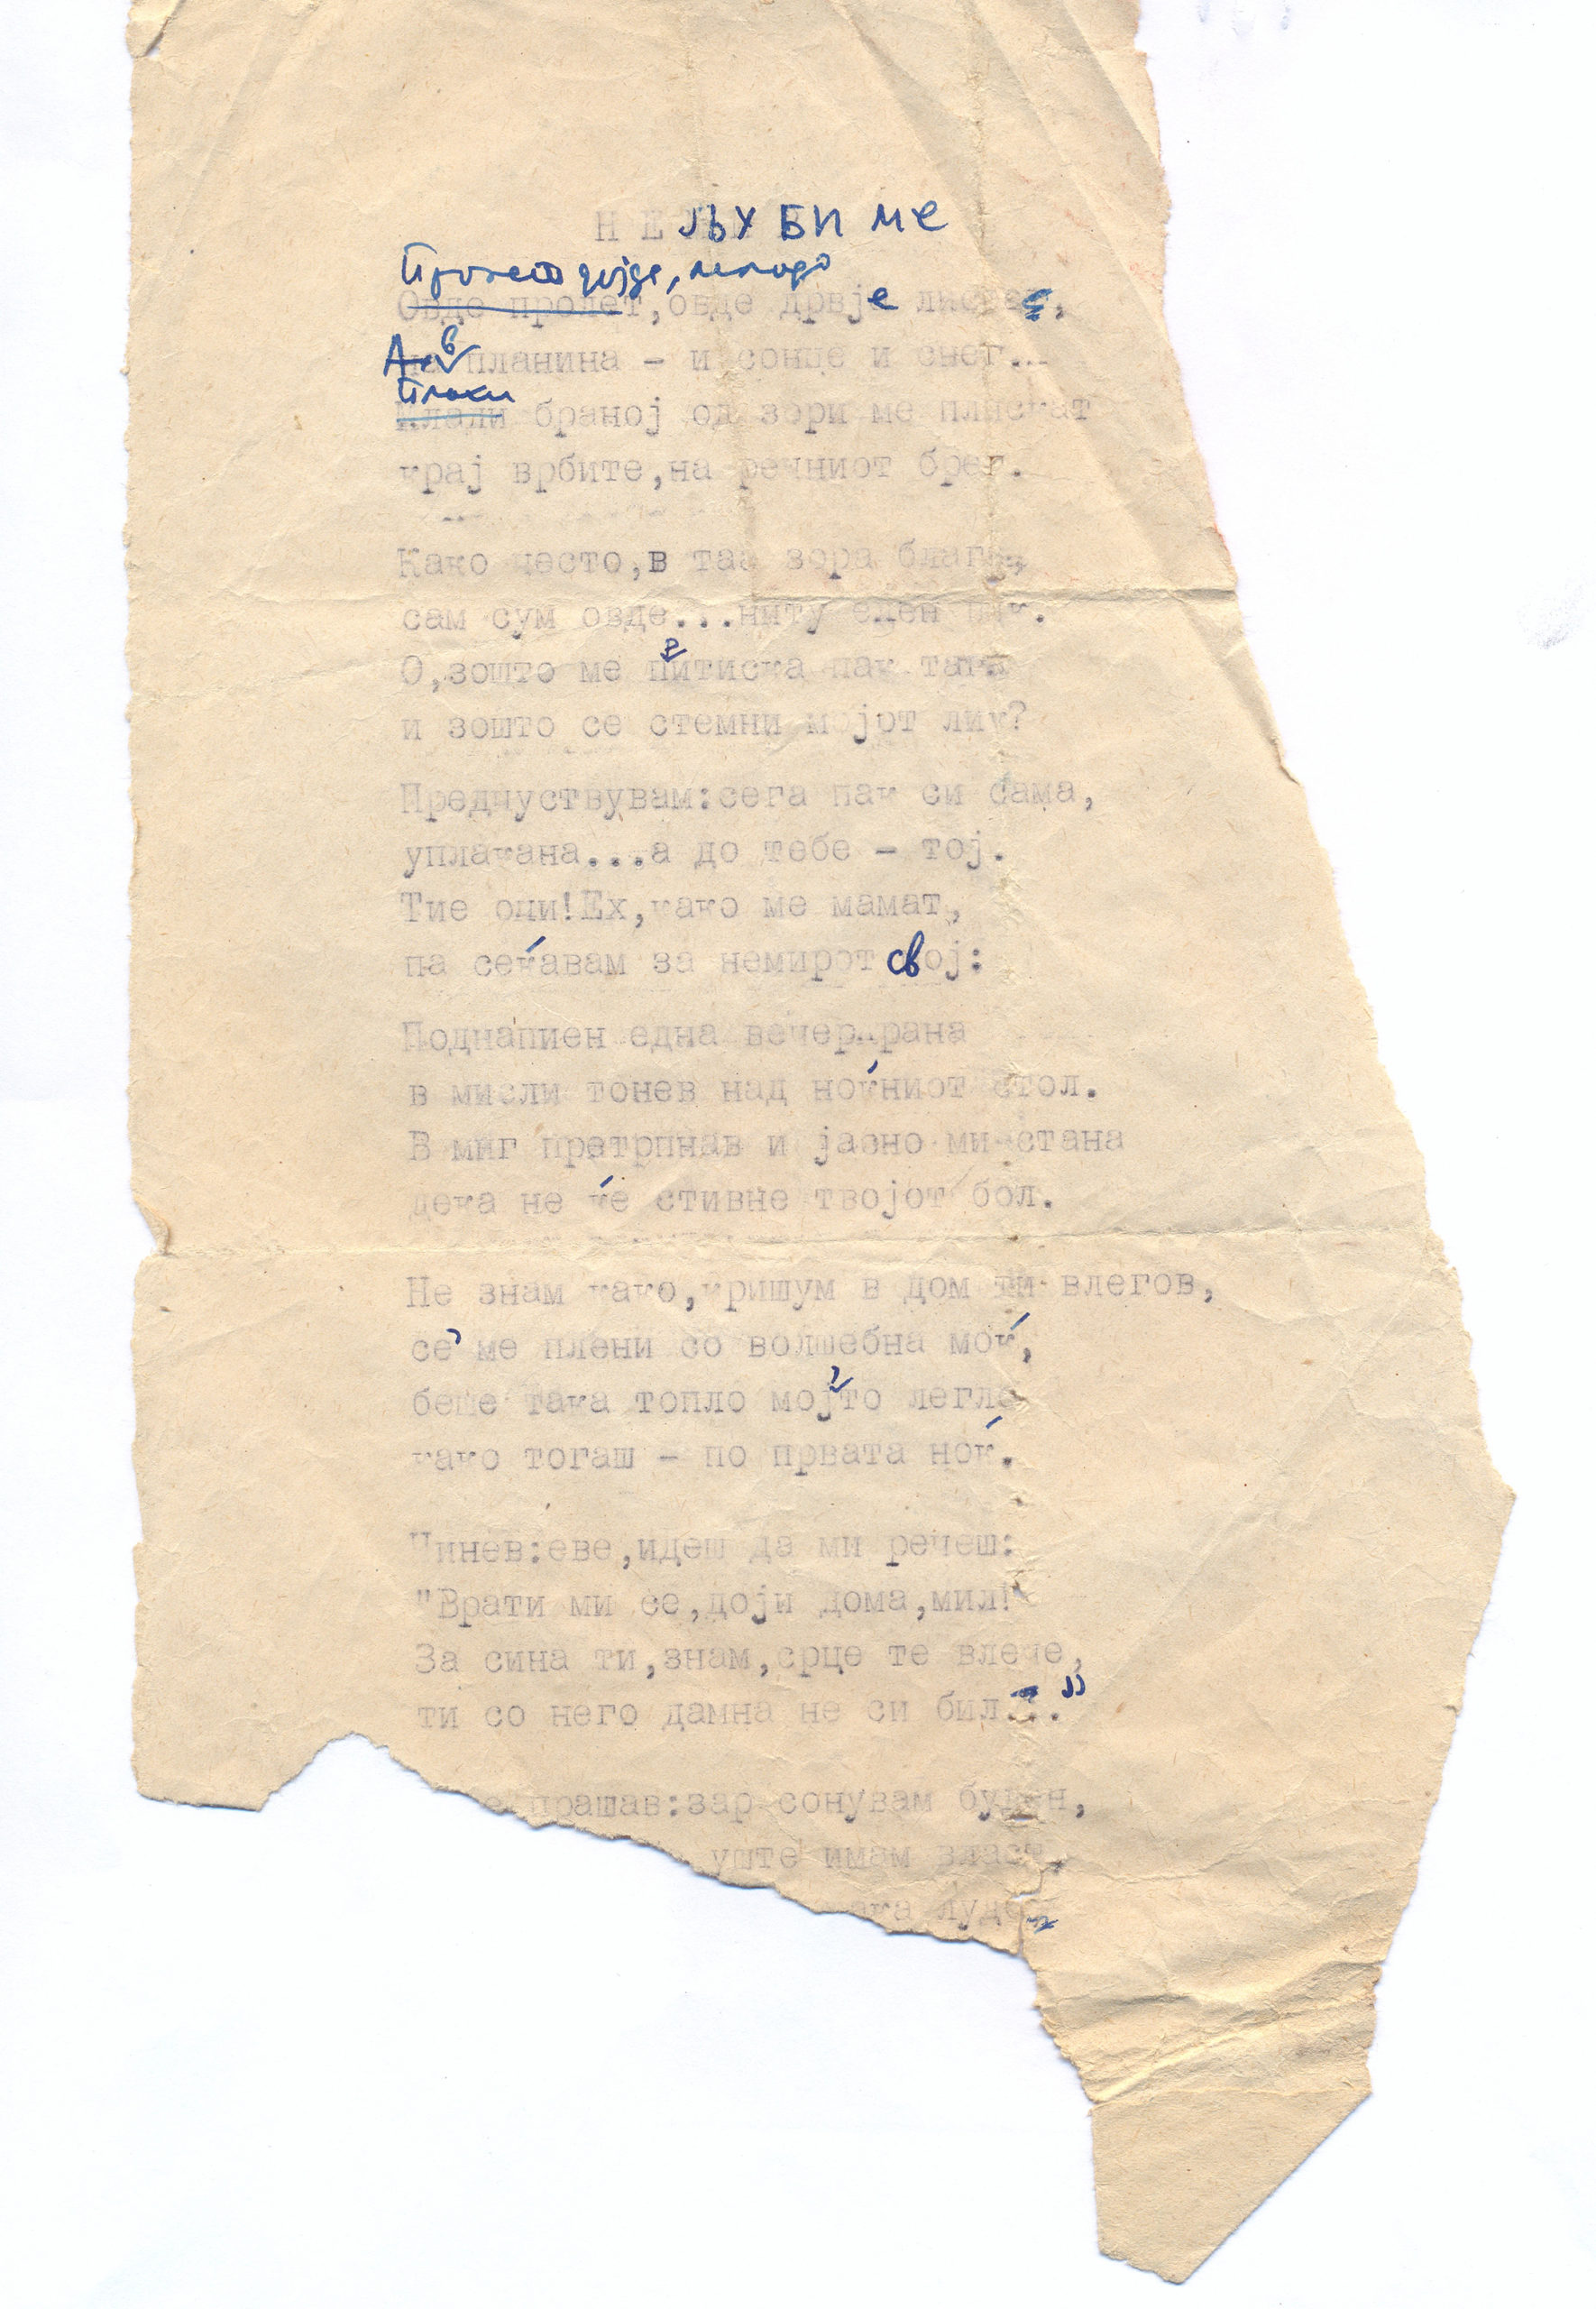 НЕ ЉУБИ МЕ
Пролет дојде, младо
Овде пролет,овде дрвје листе,
А в планина - и сонце и снег...
Плаки
Млади браној од зори ме плискат
крај врбите,на речниот брег.
Како често,в таа зора блага,
сам сум овде...ниту еден лик.
О,зошто ме питиска пак тага
и зошто се стемни мојот лик?
Предчуствувам:сега пак си сама,
уплакана...а до тебе - тој.
Тие очи!Ех,како ме мамат,
па сеќавам за немирот свој:
Поднапиен една вечер рана
в мисли тонев над ноќниот стол.
В миг претрпнав и јасно ми стана
дека не ќе стивне твојот бол.
Не знам како,кришум в дом ти влегов,
се' ме плени со волшебна моќ,
беше така топло мојто легло
како тогаш - по првата ноќ.
Чинев:еве,идеш да ми речеш:
"Врати ми се,доји дома,мил!
За сина ти,знам,срце те влече,
ти со него дамна не си бил..."
прашав:зар сонувам буден,
уште имам власт,